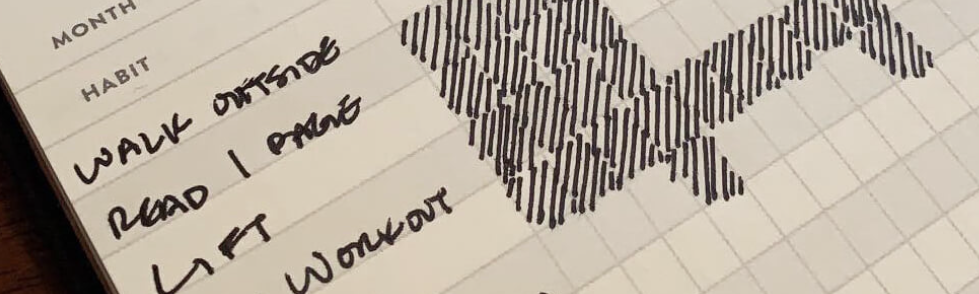 MONTH
HABIT
WALK OUTSIDE
READ 1 PAGE
LIFT
WORKOUT